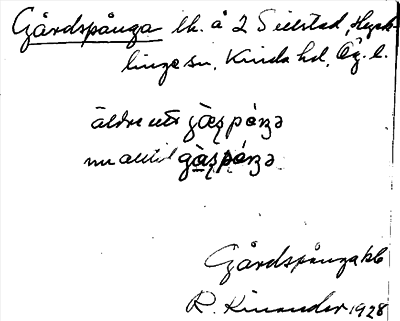 Gårdspånga lh. å 2 Sillstad, Hyck-
linge sn, Kinda hd, Ög. l.
äldre utt gɑ̀ʂpóŋə
nu alltid gɑ̀ʂpóŋə
Gårdspånga kb
R. Kinander 1928